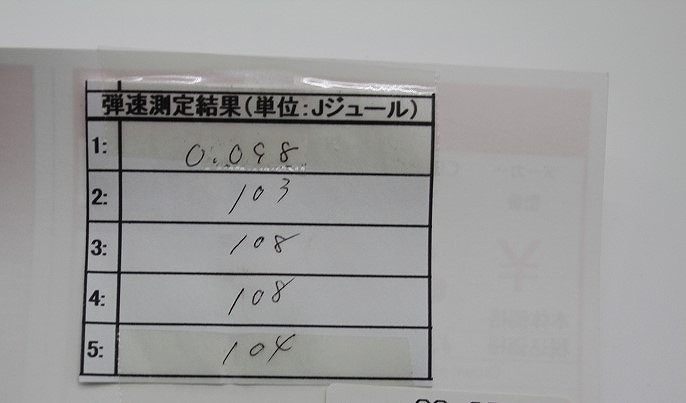 弾速測定結果(単位:Jジュール)
1: 0.098
2: 103
3: 108
4: 108
5: 104